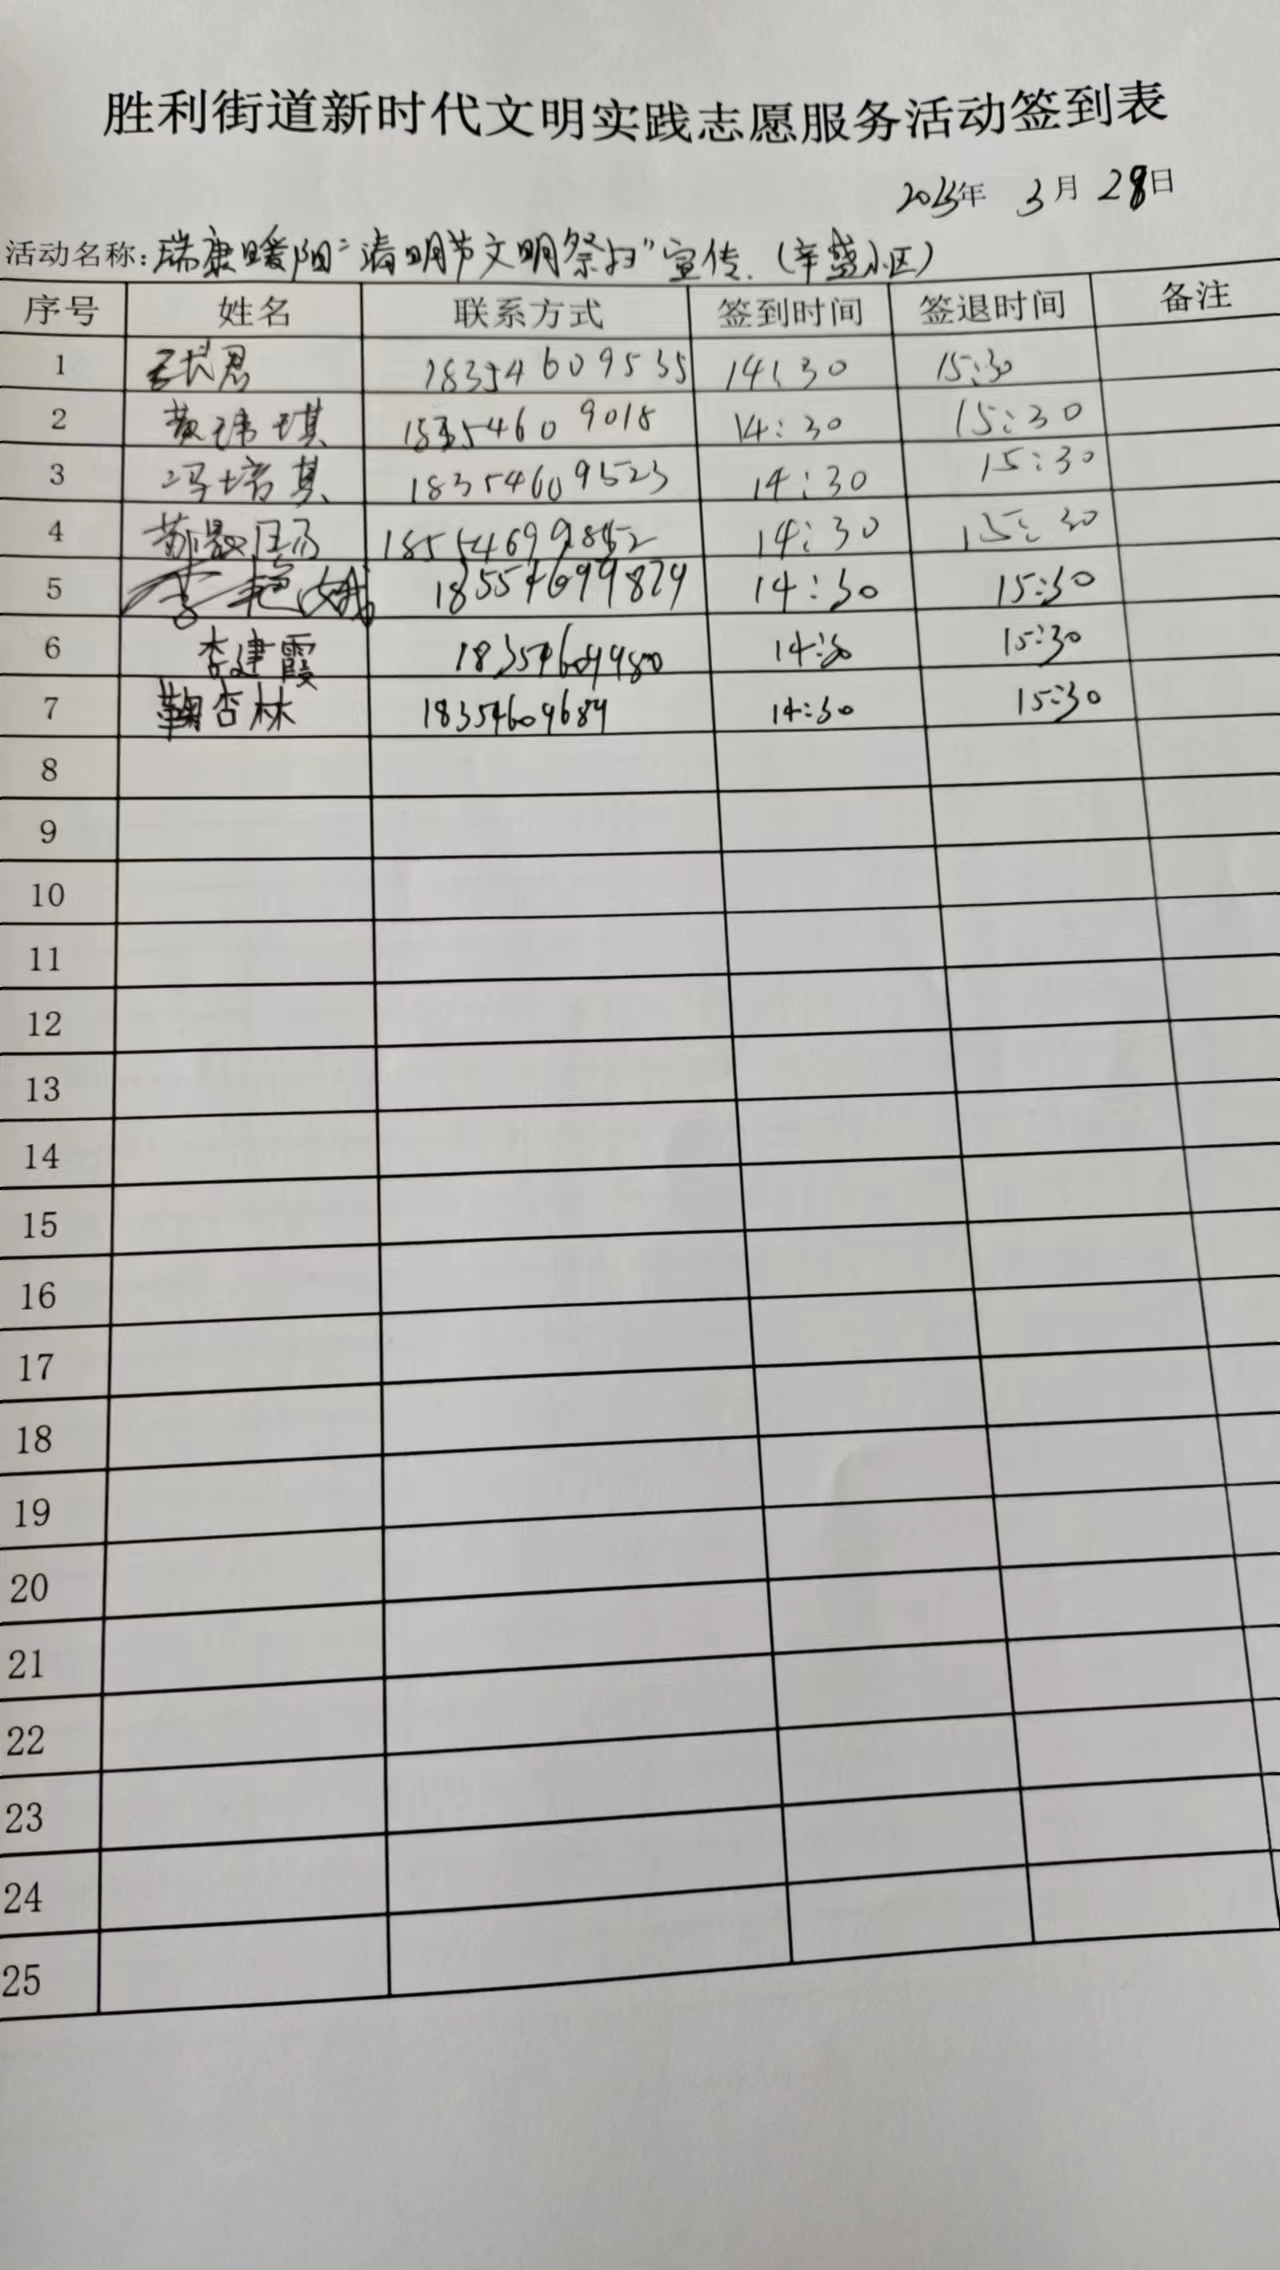 胜利街道新时代文明实践志愿服务活动签到表
2023年 3月 28日
活动名称：瑞康暖阳“清明节文明祭扫”宣传.（辛盛小区）
序号 姓名 联系方式 签到时间 签退时间 备注
1 18354609535 14:30 15:30
2 黄玮琪 18354609018 14:30 15:30
3 冯培其 18354609523 14:30 15:30
4 14:30 15:30
5 李艳娥 18554699829 14:30 15:30
6 李建霞 18354609980 14:30 15:30
7 鞠杏林 18354609689 14:30 15:30
8
9
10
11
12
13
14
15
16
17
18
19
20
21
22
23
24
25